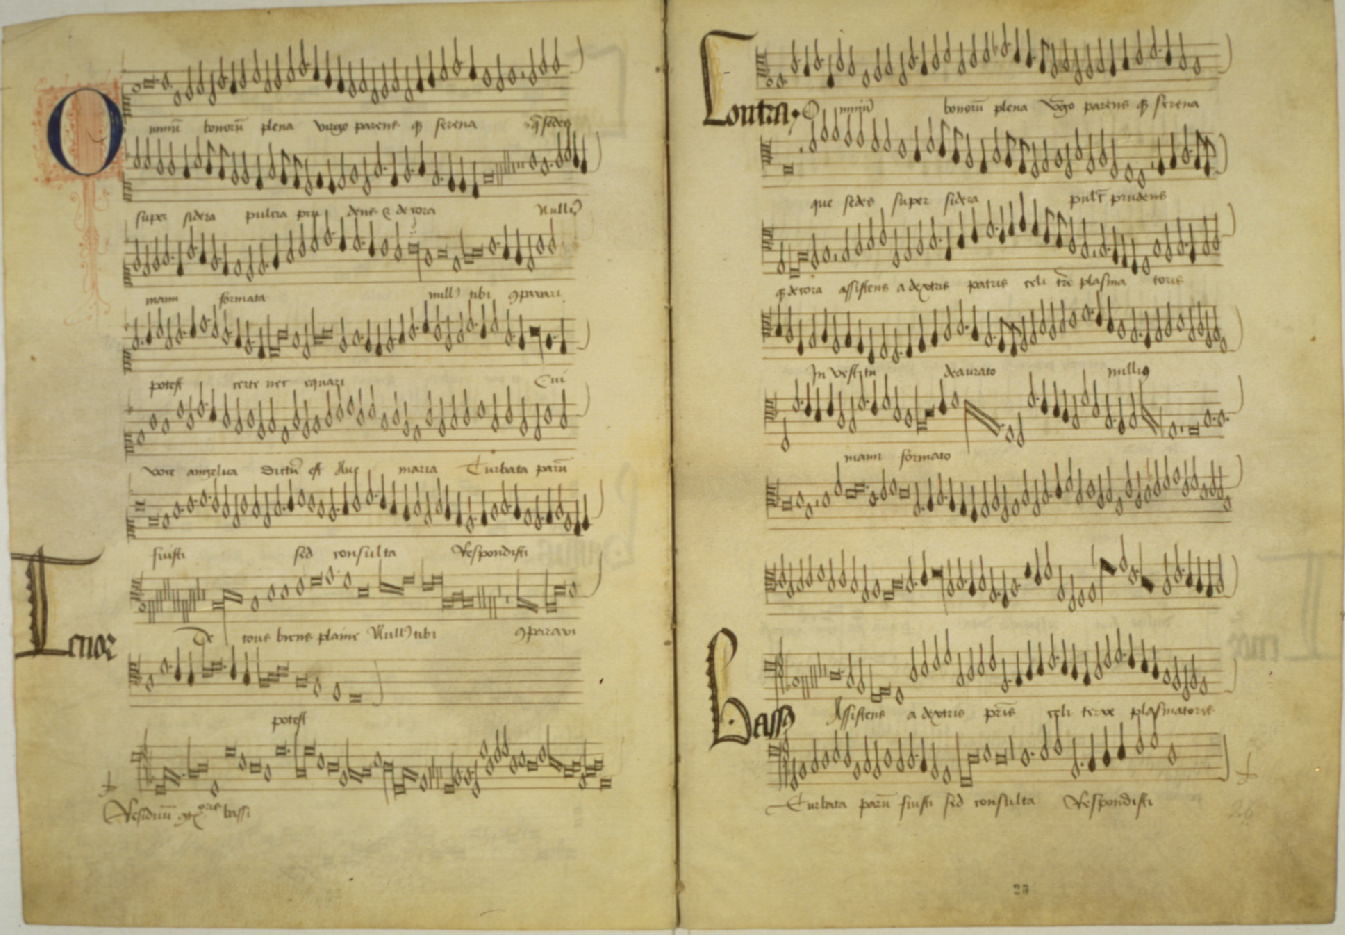 O mniū bonorū plena virgo parens q serena q sedes
super sidera pulcra pru dens & decora Nulli
mam formata null' tibi 9parari
potest certe nec equari Cui
voce angelica dictū est Aue maria Turbata parū
fuisti sed consulta Respondisti
Tenor
De tous biens plaine Null' tibi 9parari
potest
Residuū bassi
Contra O mniū bonorū plena virgo parens q serena
que sedes super sidera pulcr prudens
q decora assistens a dextris patris celi plasma toris
In vestitu deaurato nulli9
mam formato
Bassus
Assistens a dextris pris celi terre plasmatoris
Turbata parū fuisti sed consulta Respondisti